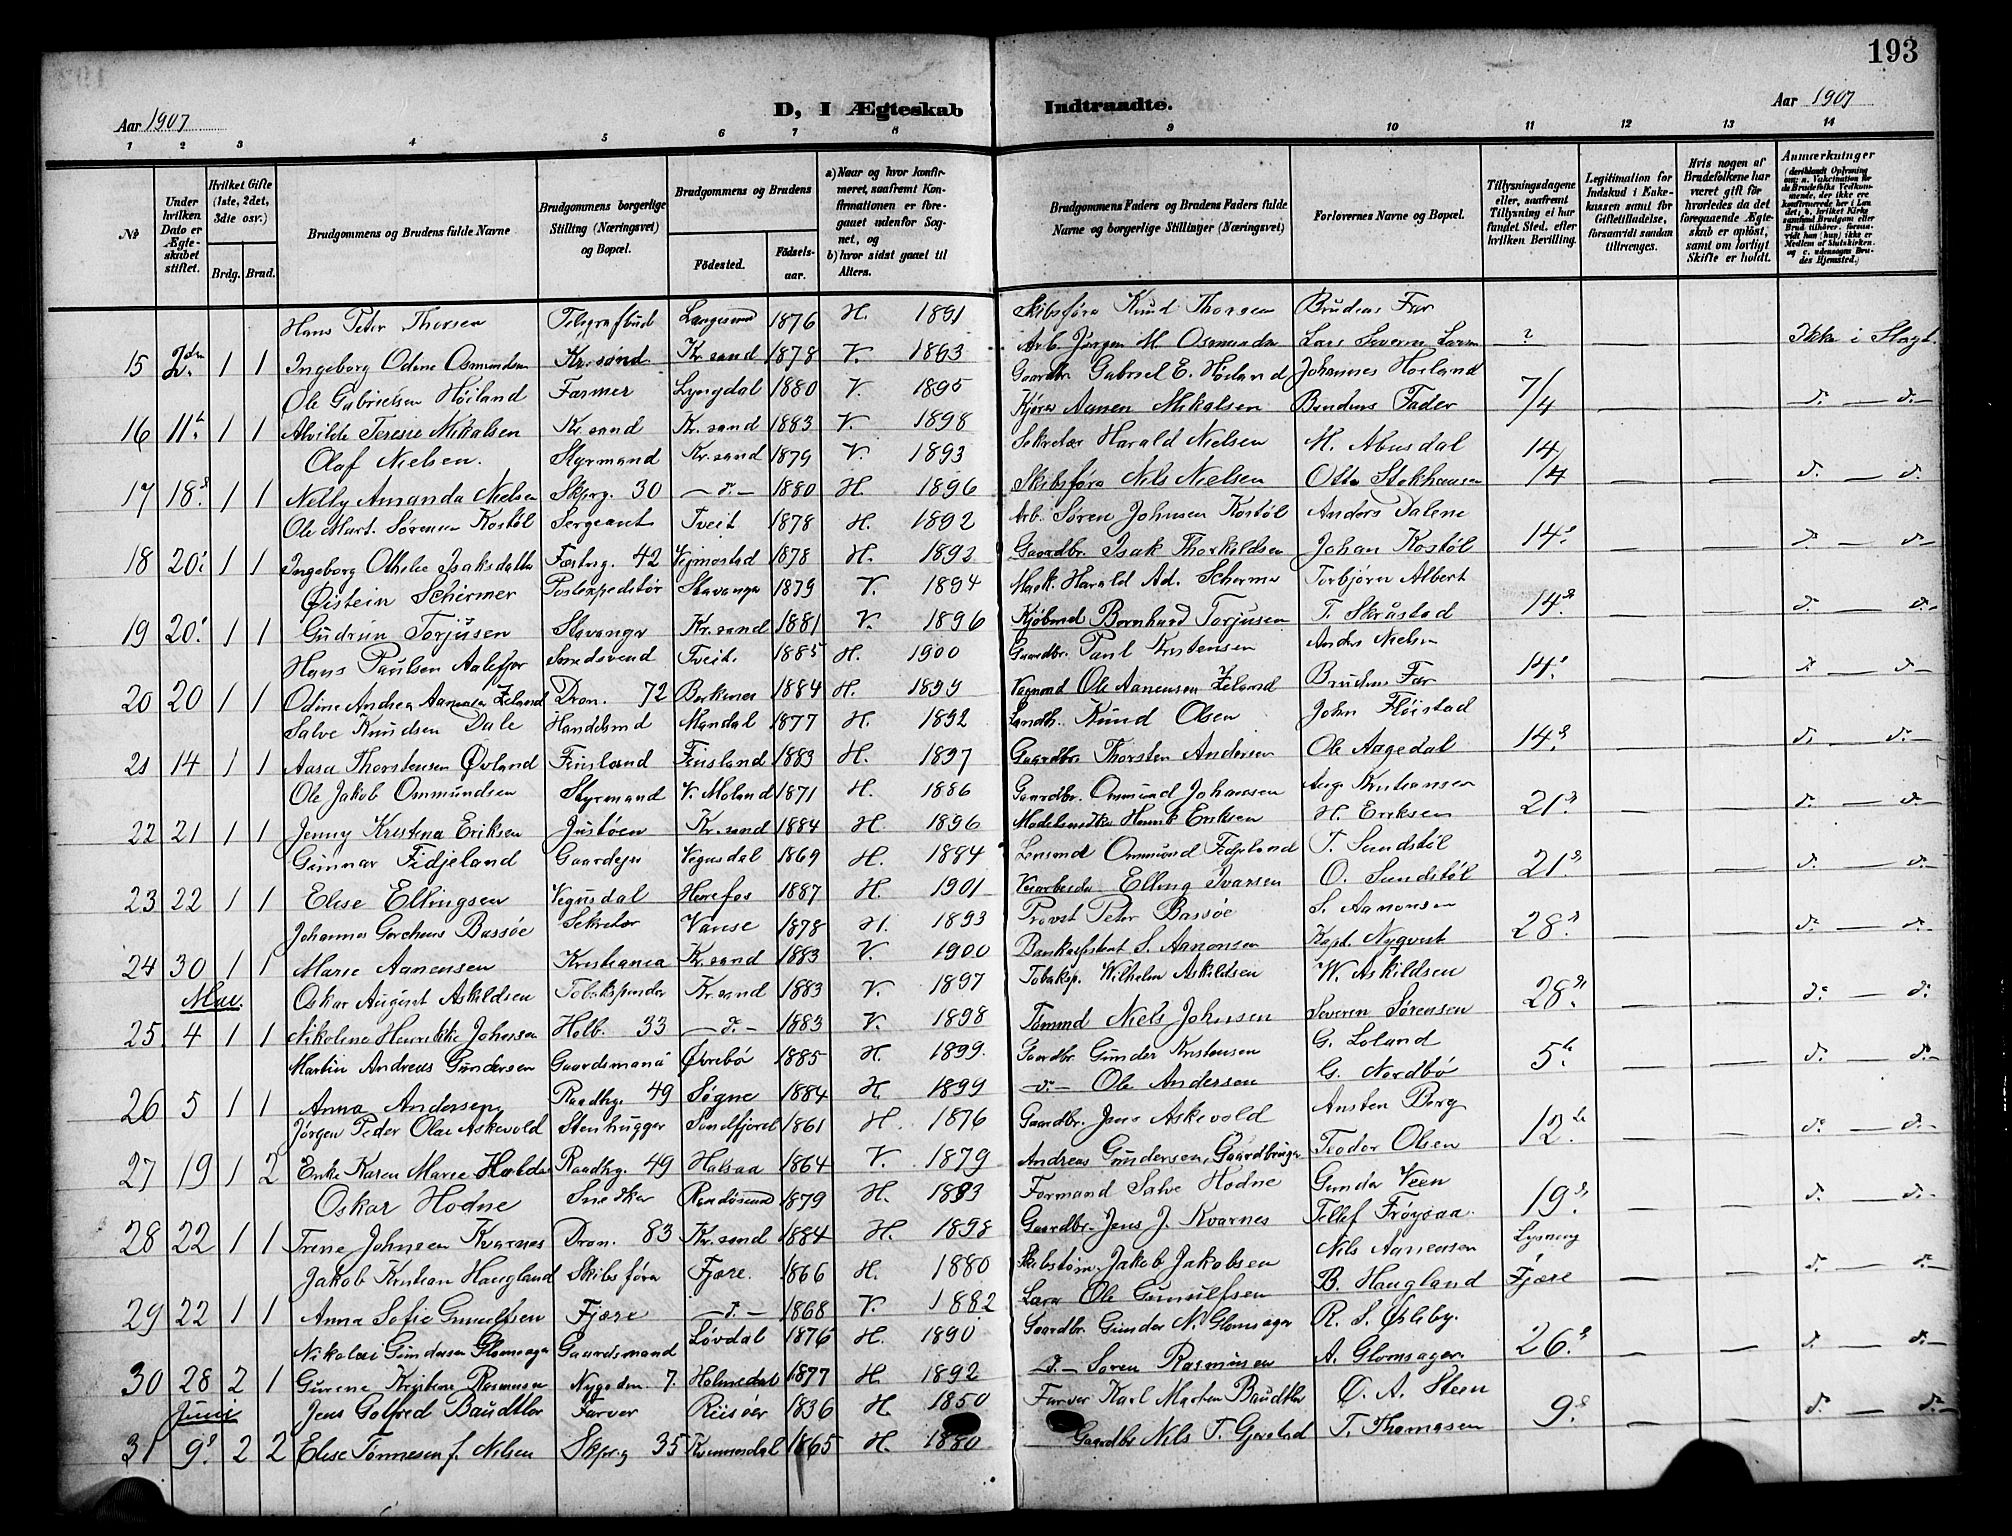 193
D, I Ægteskab Indtraadte.
Aar 1907 Aar 1907
1 2 3 4 5 6 7 8 9 10 11 12 13 14
No
Under hvilken Dato er Ægteskabet stiftet.
Hvilket Gifte (1ste, 2det, 3die osv.)
Brdg. Brud.
Brudgommens og Brudens fulde Navne
Brudgommens borgerlige Stilling (Næringsvei) og Bopæl.
Brudgommens og Brudens
Fødested. Fødselsaar.
a) Naar og hvor konfirmeret, saafremt Konfirmationen er foregaaet udenfor Sognet, og
b) hvor sidst gaaet til Alters.
Brudgommens Faders og Brudens Faders fulde Navne og borgerlige Stillinger (Næringsvei)
Forlovernes Navne og Bopæl.
Tillysningsdagene eller, saafremt Tillysning ei har fundet Sted, efter hvilken Bevilling.
Legitimation for Indskud i Enkekassen samt for Giftetilladelse, forsaavidt saadan tiltrænges.
Hvis nogen af Brudefolkene har været gift før hvorledes da det foregaaende Ægteskab er opløst, samt om lovligt Skifte er holdt.
Anmærkninger
Hans Peter Thorsen Telegrafbud Langesund 1876 H. 1891 Skibsføre Knud Thorsen Brudens Far
15 1 1 Ingeborg Odine Osmundsen Kr.sand Kr.sand 1878 V. 1863 Arb. Jørgen M. Osmunds Lars Severin Larsen ? — — Ikke i Slagt.
Ole Gabrielsen Høiland Farmer Lyngdal 1880 V. 1895 Gaardbr. Gabriel E. Høiland Johannes Høiland 7/4
16 11 1 1 Alvilde Teresie Mikalsen Kr.sand Kr.sand 1883 V. 1898 Kjører Aanen Mikalsen Brudens Fader — — d. — d.
Olaf Nielsen. Styrmand Kr.sand 1879 V. 1893 Sekretær Harald Nielsen M. Abusdal 14/4
17 18 1 1 Nelly Amanda Nielsen Skprg. 30 — d. — 1880 H. 1896 Skibsføre Nils Nielsen Otto Stokhausen — — d. — d.
Ole Mart. Sørensen Kostøl Sergeant Tveit 1878 H. 1892 Arb. Søren Johnsen Kostøl Anders Dalene 14.
18 20 1 1 Ingeborg Othelie Isaksdatter Fæstng. 42 Vegmostad 1878 H. 1892 Gaardbr. Isak Thorkildsen Johan Kostøl — — d. — d.
Øistein Schirmer Postexpeditør Stavanger 1879 V. 1894 Mask. Harald Ad. Schirmer Torbjørn Albert 14.
19 20 1 1 Gudrun Torjusen Stavanger Kr.sand 1881 V. 1896 Kjøbmd Bernhard Torjusen T. Skråstad — — d. — d.
Hans Paulsen Aalefjær Tveit. 1885 H. 1900 Gaardbr. Paul Kristensen Anders Nielsen 14.
20 20 1 1 Odine Andrea Aanensen Zeland Dron. 72 Birkenes 1884 H. 1899 Vognmd Ole Aanensen Zeland Brudens Far — — d. — d.
Salve Knudsen Dale Handelsmd Mandal 1877 H. 1892 Landh. Knud Olsen John Fløistad 14.
21 14 1 1 Aasa Thorstensen Øvland Finsland Finsland 1883 H. 1897 Gaardbr. Thorsten Andersen Ole Aagedal — — d. — d.
Ole Jakob Ommundsen Styrmand V. Moland 1871 H. 1886 Gaardbr. Ommund Johansen Aug. Kristiansen 21.
22 21 1 1 Jenny Kristina Eriksen Justøen Kr.sand 1884 H. 1896 Henrik Eriksen H. Eriksen — — d. — d.
Gunnar Fidjeland Gaardejer Vegusdal 1869 H. 1884 Lensmd Ommund Fidjeland T. Sundstøl 21.
23 22 1 1 Elise Ellingsen Vegusdal Herefos 1887 H. 1901 Veiarbeider Elling Ivarsen O. Sundstøl — — d. — d.
Johannes Gerckens Bassøe Sekretær Vanse 1878 H. 1893 Provst Peter Bassøe S. Aanonsen 28.
24 30 1 1 Marie Aanensen Kristiania Kr.sand 1883 V. 1900 S. Aanonsen Kapt. Nyqvist — — d. — d.
Mai. Oskar August Askildsen Tobakspinder Kr.sand 1883 V. 1897 Tobaksp. Wilhelm Askildsen W. Askildsen 28.
25. 4 1 1 Nikoline Henrikke Johnsen Holb. 33 — d. — 1883 V. 1898 Tømmd Niels Johnsen Severin Sørensen — — d. — d.
Martin Andreas Gundersen Gaardsmand Øvrebø 1885 H. 1899. Gaardbr. Gunder Kristensen G. Loland 5.
26 5 1 1 Anna Andersen Raadhg. 49 Søgne 1884 H 1899 — d. — Ole Andersen G. Nordbø — — d. — d.
Jørgen Peder Olai Askevold Stenhugger Søndfjord 1861 H. 1876 Gaardbr. Jens Askevold Ansten Berg 12.
27 19 1 2 Enke Karen Marie Raadhg. 49 Halsaa 1864 V. 1879 Andreas Gundersen, Gaardbruger Teodor Olsen — — d. — d.
Oskar Hodne Snedker Randøsund 1879 H. 1893 Formand Salve Hodne Gunder Veen 19.
28 22 1 1 Trine Johnsen Kvarnes Dron. 83 Kr.sand 1884 H. 1898 Gaardbr. Jens J. Kvarnes Tellef Frøysaa — — d. — d.
Jakob Kristian Haugland Skibsføre Fjære. 1866 H. 1880 Skibstøm. Jakob Jakobsen Nils Aanensen Lysning
29 22 1 1 Anna Sofie Gunulfsen Fjære — d. — 1868 V. 1882 Lærer Ole Gunulfsen B. Haugland Fjære — — d. — d.
Nikolai Gundersen Glomsager Gaardsmand Løvdal 1876 H. 1890 Gaardbr. Gunder N. Glomsager R. S. Øsleby. 26.
30 28 2 1 Gurine Kristine Rasmusen Nygaden 7. Holmedal 1877 H 1892 — d. — Søren Rasmusen A. Glomsager — — d. — d.
Juni Jens Gotfred Baudtler Farver Riisøer 1836 H. 1850 Farver Karl Morten Baudtler O. A. Steen 9.
31 9 2 2 Elise Tønnesen f. Nilsen Skprg 35 Kvinnesdal 1865 H. 1880 Gaardbr Nils T. Gjerstad T. Thomasen — — d. — d.